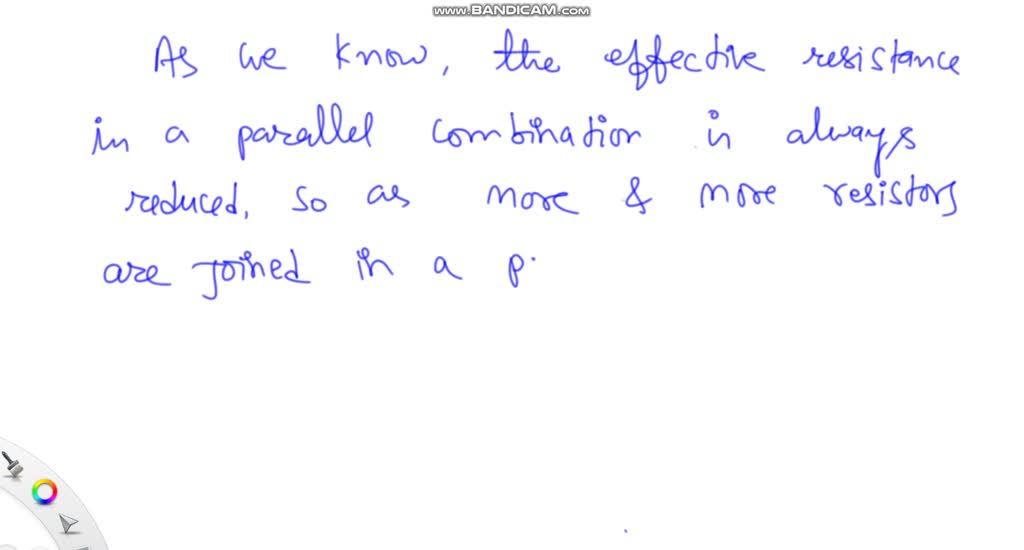 www.BANDICAM.com
As we know, the effective resistance
in a parallel combination is always
reduced, so as more & more resistors
are joined in a p